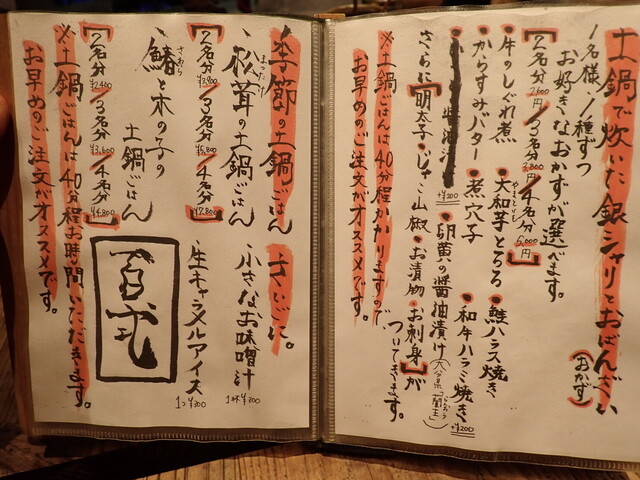 土鍋で炊いた銀シャリとおばんざい
(おかず)
1名様/1種ずつ
お好きなおかずが選べます。
【2名分/3名分/4名分】
円 3,800円 5,000円
・牛のしぐれ煮
・大和芋とろろ
やまといも
・鮭ハラス焼き
・からすみバター
・煮穴子
・和牛ハラミ焼き
+¥200
+¥200
・卵黄の醤油漬け(大分県「蘭王」)
さらに【明太子・じゃこ山椒・お漬物・お刺身】が
ついてきます。
※土鍋ごはんは40分程かかりますので、
お早めのご注文がオススメです。
季節の土鍋ごはん
・松茸の土鍋ごはん
まつたけ
【2名分/3名分/4名分】
¥5,800 ¥7,800
・鰆と木の子の
さわら
土鍋ごはん
【2名分/3名分/4名分】
¥2,400 ¥3,600 ¥4,800
※土鍋ごはんは40分程お時間いただきます。
お早めのご注文がオススメです。
さいごに。
・小さなお味噌汁
1杯¥200
・生キャラメルアイス
1つ¥300